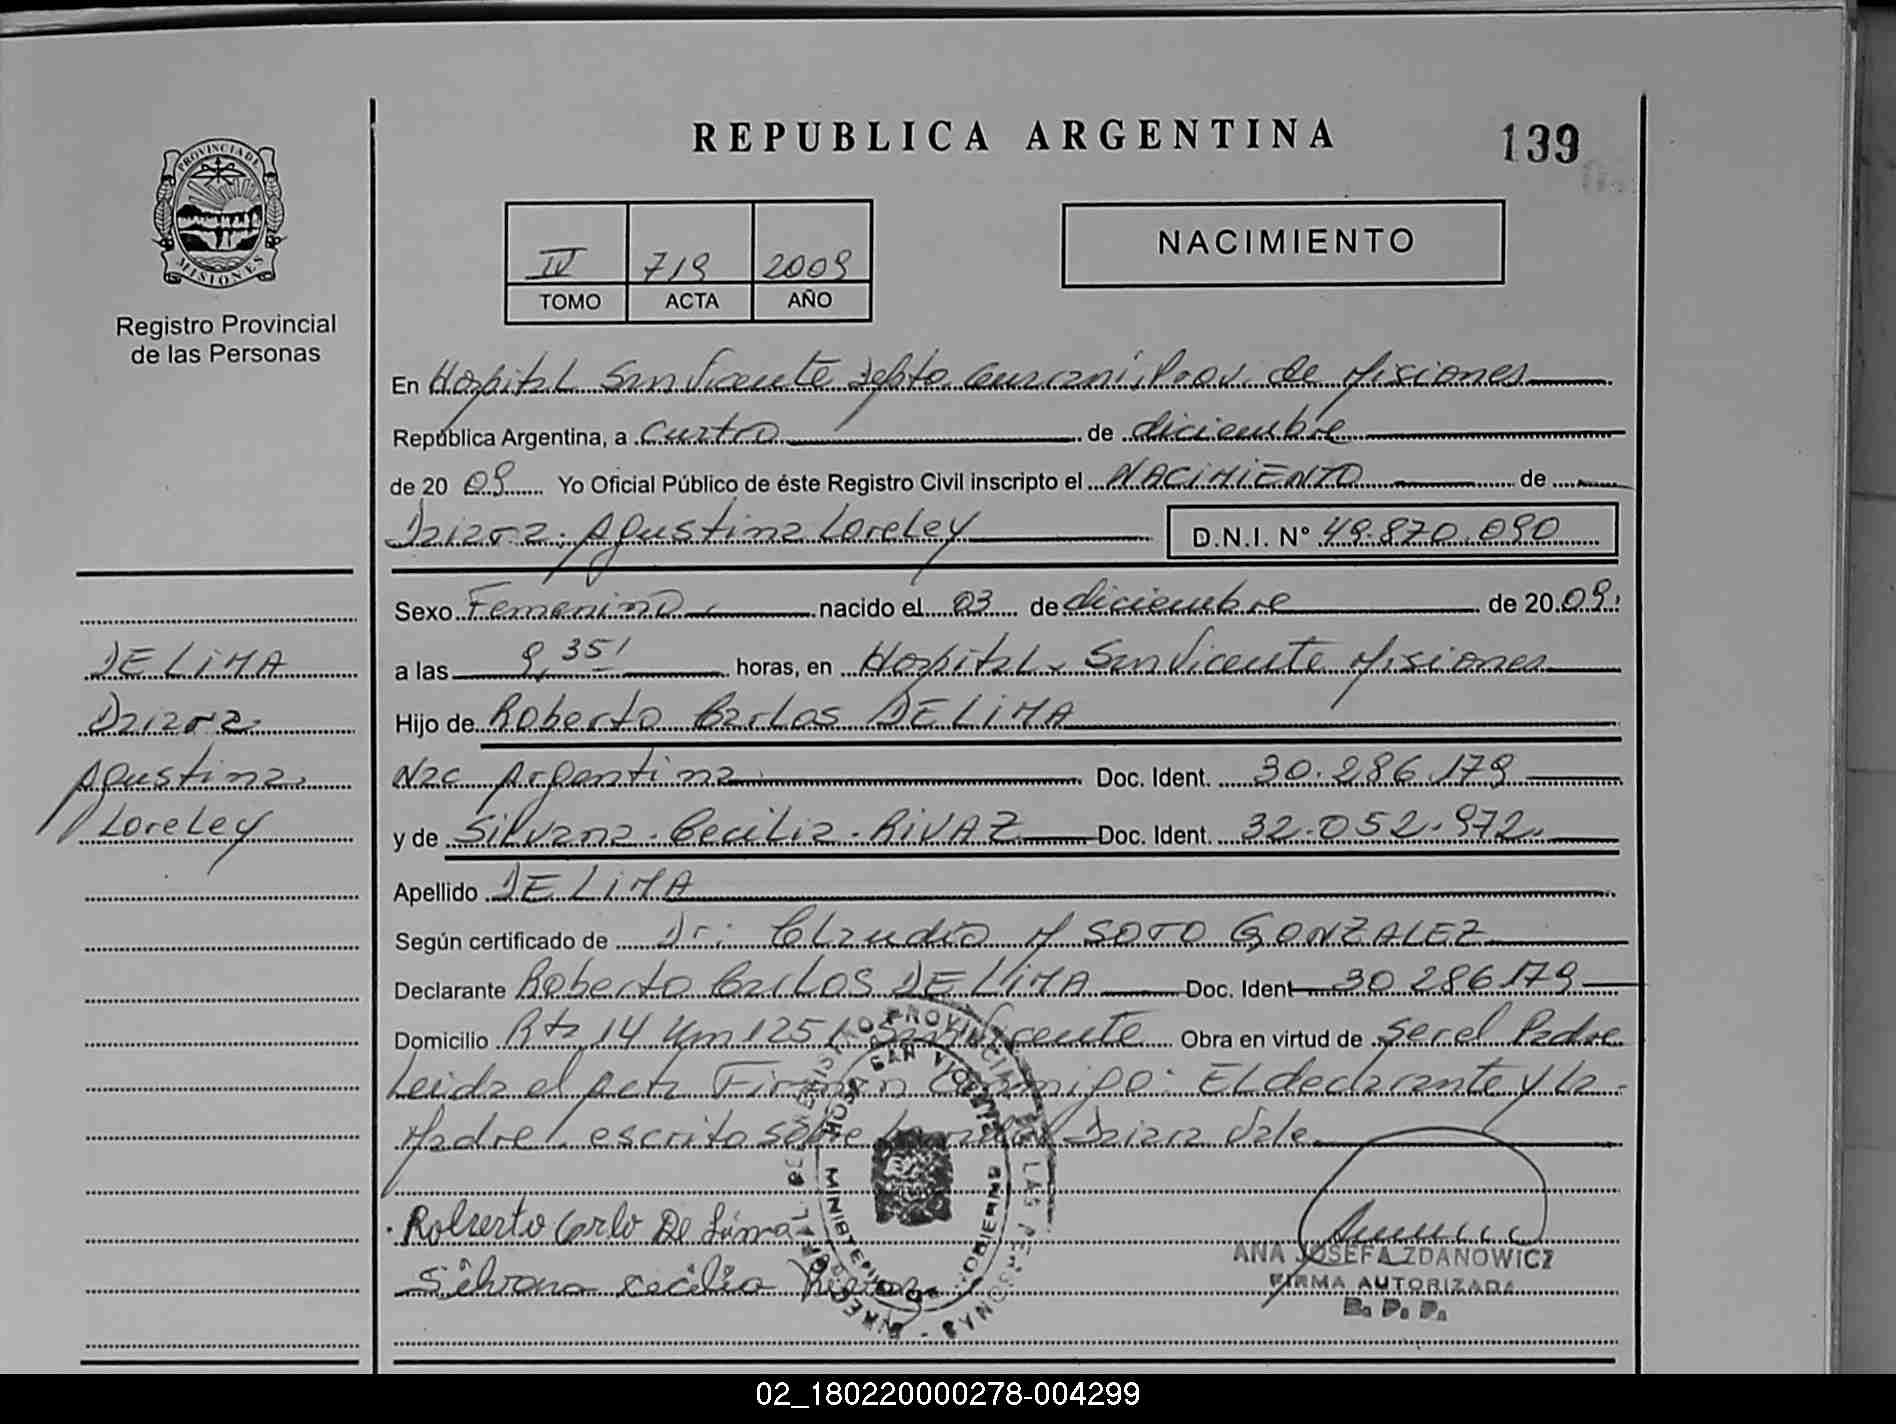 REPUBLICA ARGENTINA
139
PROVINCIA DE
MISIONES
Registro Provincial
de las Personas
IV 719 2009
TOMO ACTA AÑO
NACIMIENTO
En Hospital San Vicente Depto Guarani, Prov. de Misiones
República Argentina, a Cuatro de diciembre
de 20 09 Yo Oficial Público de éste Registro Civil inscripto el NACIMIENTO de
Daiara. Agustina Loreley D.N.I. Nº 49.870.090
Sexo Femenino nacido el 03 de diciembre de 20 09
a las 9,35' horas, en Hospital San Vicente Misiones
Hijo de Roberto Carlos DE LIMA
Nac Argentina Doc. Ident. 30.286.179
y de Silvana Cecilia RIVAZ Doc. Ident. 32.052.972
Apellido DE LIMA
Según certificado de Dr: Claudio M SOTO GONZALEZ
Declarante Roberto Carlos DE LIMA Doc. Ident 30 286179
Domicilio Rta 14 Km 1251 San Vicente Obra en virtud de ser el Padre
Leida el acta Firman Conmigo: El declarante y la
Madre/ escrito sobre Daiara Vale
DE LIMA
Daiara
Agustina
Loreley
Roberto Carlo De Lima
Silvana cecilia
ANA JOSEFA ZDANOWICZ
FIRMA AUTORIZADA
R. P. P.
02_180220000278-004299